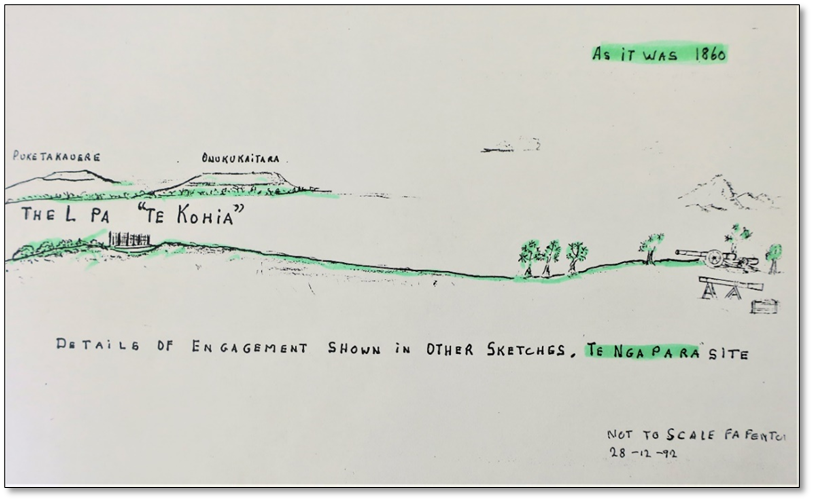 As it was 1860
PUKETAKAUERE ONUKUKAITARA
THE L PA "TE KOHIA"
DETAILS OF ENGAGEMENT SHOWN IN OTHER SKETCHES. TE NGAPARA SITE
NOT TO SCALE FA FENTO
28-12-92